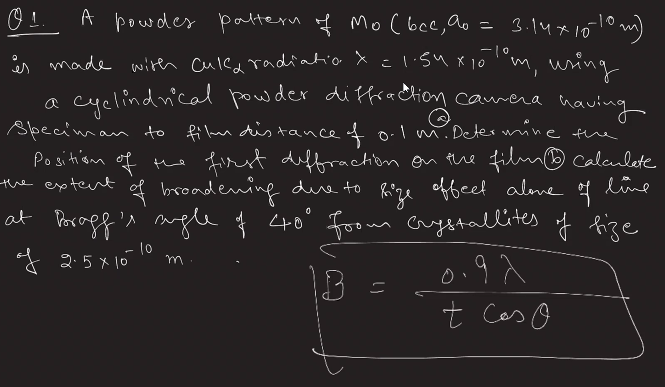 Q1. A powder pattern of Mo (bcc, a₀ = 3.14 × 10⁻¹⁰ m)
is made with CuKα radiatio λ = 1.54 × 10⁻¹⁰ m, using
a cyclindrical powder diffraction camera having
Speciman to film distance of 0.1 m. (a) Determine the
Position of the first diffraction on the film (b) calculate
the extent of broadening due to size effect alone of line
at Bragg's angle of 40° from crystallites of size
of 2.5 × 10⁻¹⁰ m.
B = 0.9 λ / t cos θ